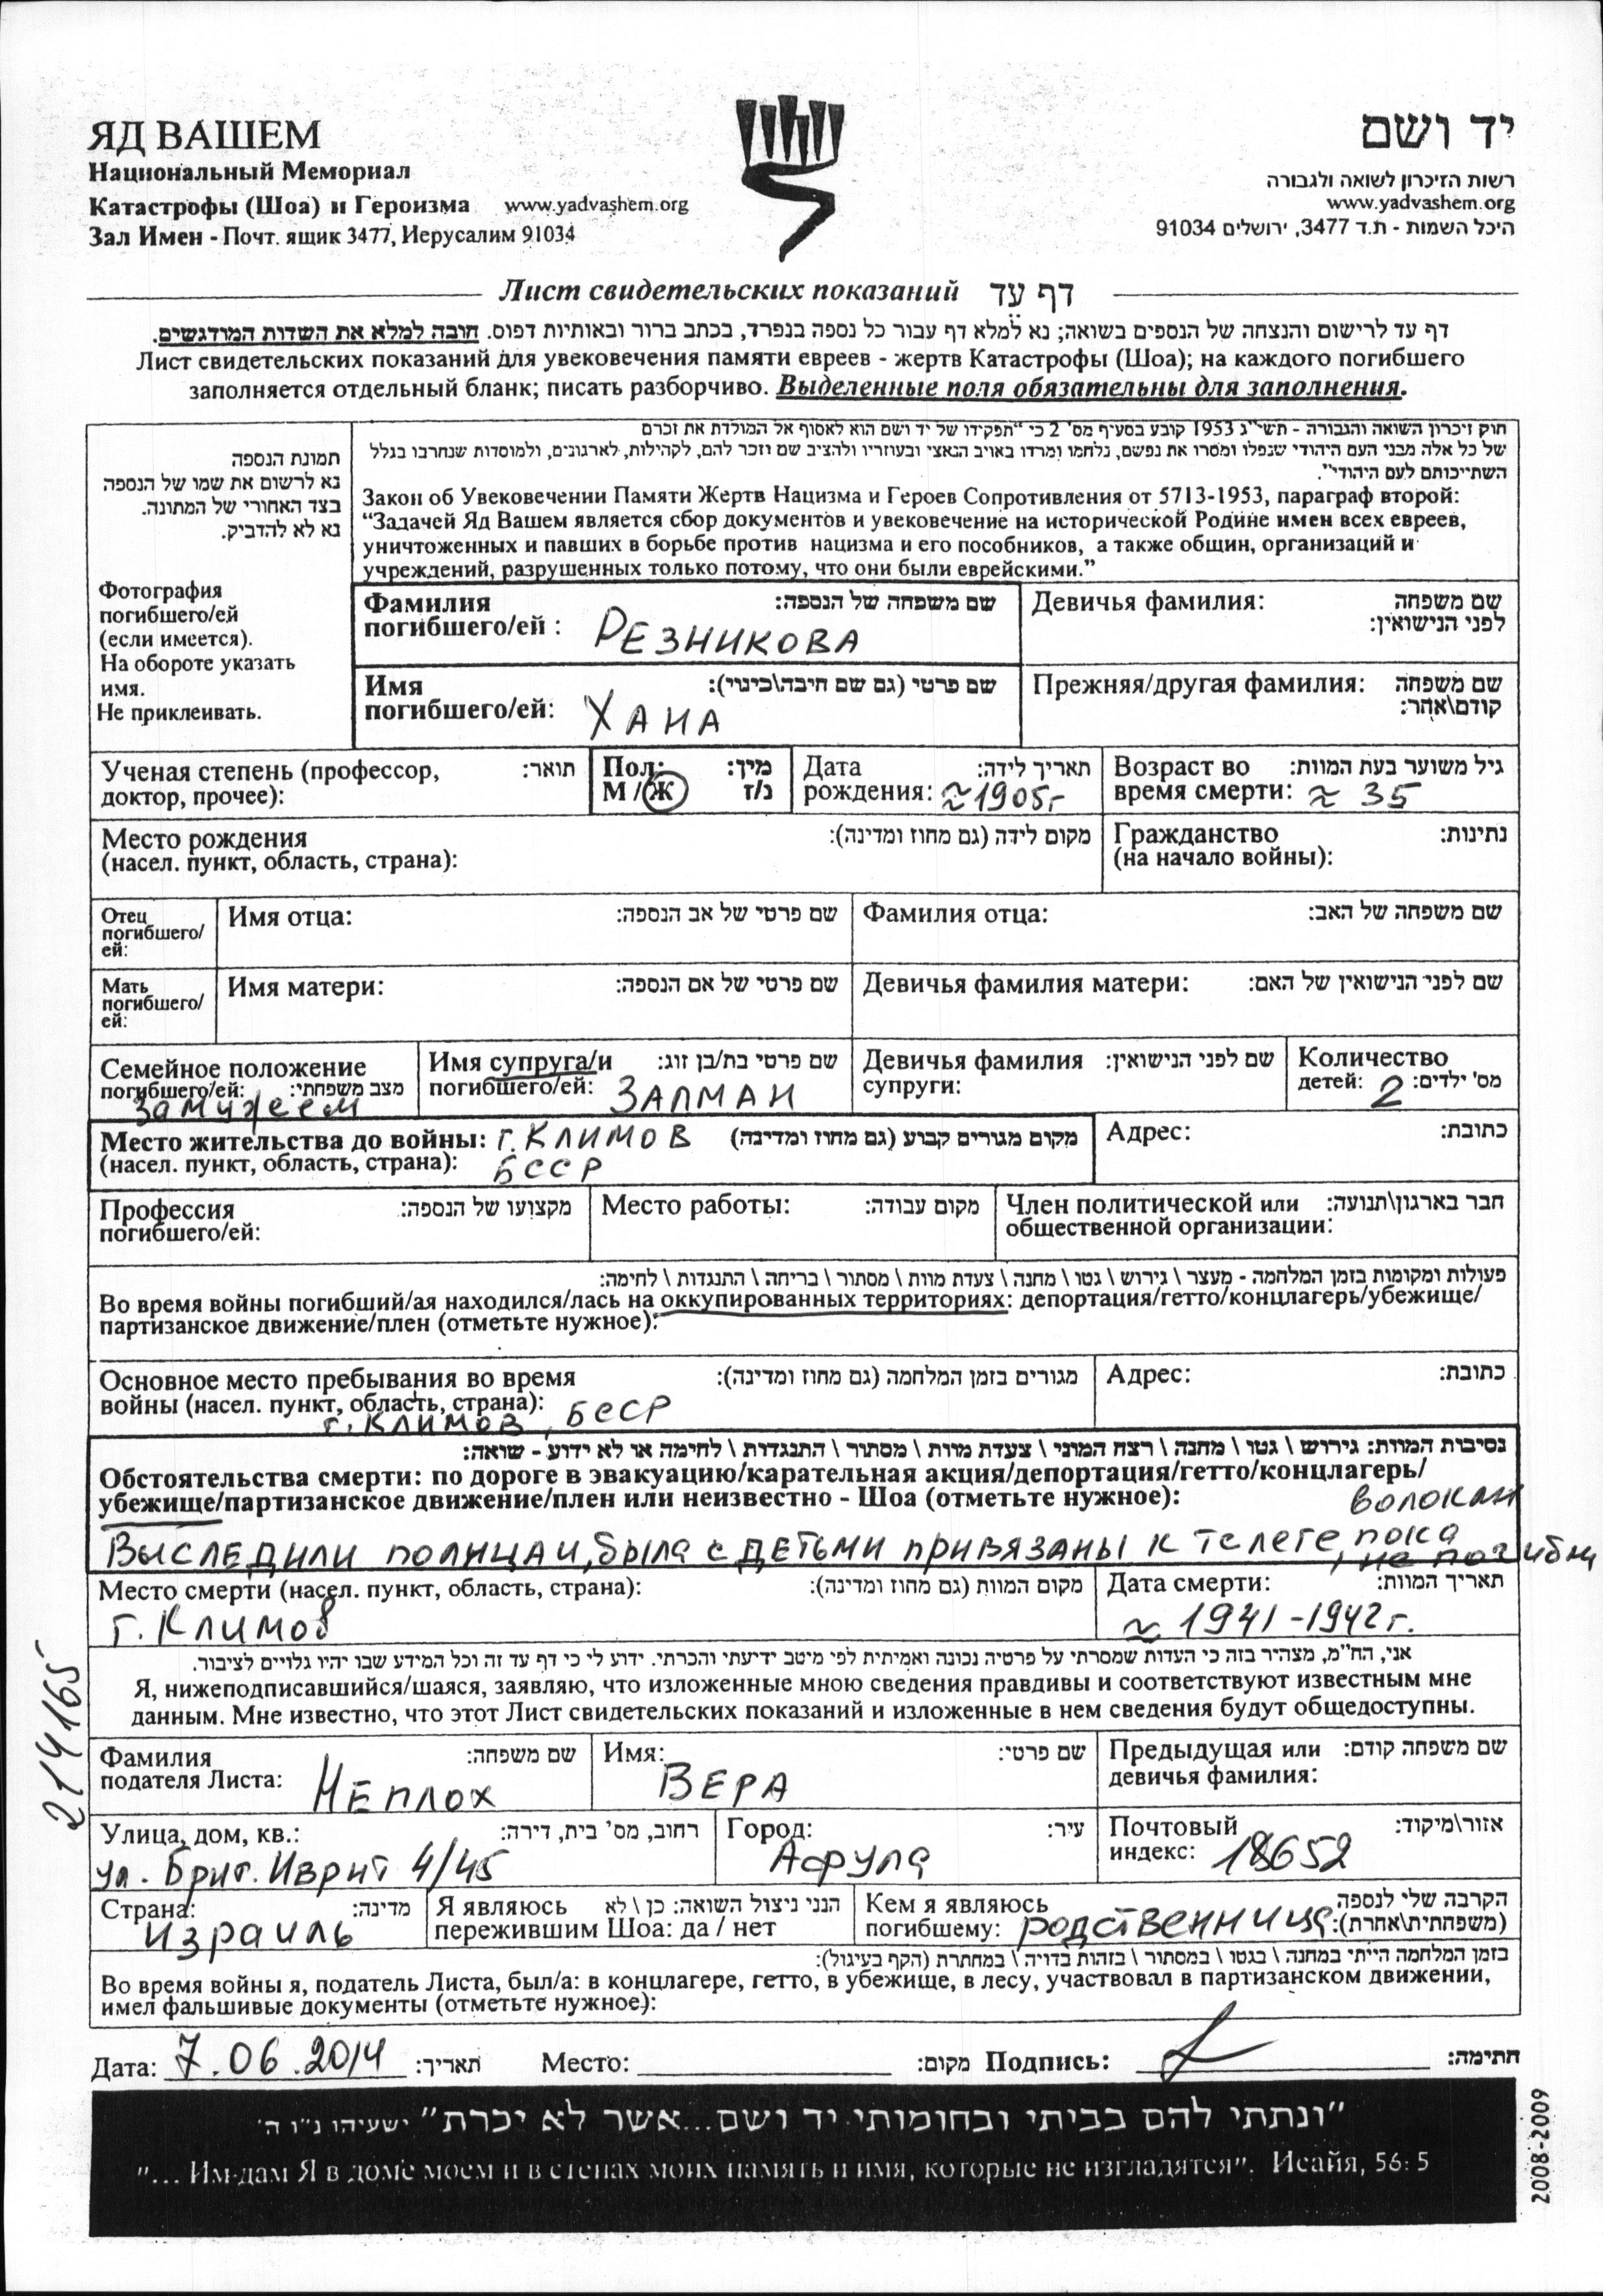 ЯД ВАШЕМ
Национальный Мемориал
Катастрофы (Шоа) и Героизма www.yadvashem.org
Зал Имен - Почт. ящик 3477, Иерусалим 91034
יד ושם
רשות הזיכרון לשואה ולגבורה
www.yadvashem.org
היכל השמות - ת.ד 3477, ירושלים 91034
Лист свидетельских показаний דף עד
דף עד לרישום והנצחה של הנספים בשואה; נא למלא דף עבור כל נספה בנפרד, בכתב ברור ובאותיות דפוס. חובה למלא את השדות המודגשים.
Лист свидетельских показаний для увековечения памяти евреев - жертв Катастрофы (Шоа); на каждого погибшего
заполняется отдельный бланк; писать разборчиво. Выделенные поля обязательны для заполнения.
תמונת הנספה
נא לרשום את שמו של הנספה
בצד האחורי של התמונה.
נא לא להדביק.
Фотография
погибшего/ей
(если имеется).
На обороте указать
имя.
Не приклеивать.
חוק זיכרון השואה והגבורה - תשי"ג 1953 קובע בסעיף מס' 2 כי "תפקידו של יד ושם הוא לאסוף אל המולדת את זכרם
של כל אלה מבני העם היהודי שנפלו ומסרו את נפשם, נלחמו ומרדו באויב הנאצי ובעוזריו ולהציב שם וזכר להם, לקהילות, לארגונים, ולמוסדות שנחרבו בגלל
השתייכותם לעם היהודי".
Закон об Увековечении Памяти Жертв Нацизма и Героев Сопротивления от 5713-1953, параграф второй:
“Задачей Яд Вашем является сбор документов и увековечение на исторической Родине имен всех евреев,
уничтоженных и павших в борьбе против нацизма и его пособников, а также общин, организаций и
учреждений, разрушенных только потому, что они были еврейскими.”
Фамилия שם משפחה של הנספה:
погибшего/ей : РЕЗНИКОВА
Девичья фамилия: שם משפחה
לפני הנישואין:
Имя שם פרטי (גם שם חיבה\כינוי):
погибшего/ей: ХАНА
Прежняя/другая фамилия: שם משפחה
קודם\אחר:
Ученая степень (профессор, תואר:
доктор, прочее):
Пол: מין:
М / Ж ז/נ
Дата תאריך לידה:
рождения: ≈1905г
Возраст во גיל משוער בעת המוות:
время смерти: ≈ 35
Место рождения מקום לידה (גם מחוז ומדינה):
(насел. пункт, область, страна):
Гражданство נתינות:
(на начало войны):
Отец
погибшего/
ей:
Имя отца: שם פרטי של אב הנספה:
Фамилия отца: שם משפחה של האב:
Мать
погибшего/
ей:
Имя матери: שם פרטי של אם הנספה:
Девичья фамилия матери: שם לפני הנישואין של האם:
Семейное положение
погибшего/ей: מצב משפחתי:
замужем
Имя супруга/и שם פרטי בת/בן זוג:
погибшего/ей: ЗАЛМАН
Девичья фамилия שם לפני הנישואין:
супруги:
Количество
детей: 2 מס' ילדים:
Место жительства до войны: г. КЛИМОВ מקום מגורים קבוע (גם מחוז ומדינה)
(насел. пункт, область, страна): БССР
Адрес: כתובת:
Профессия מקצועו של הנספה:
погибшего/ей:
Место работы: מקום עבודה:
Член политической или חבר בארגון\תנועה:
общественной организации:
פעולות ומקומות בזמן המלחמה - מעצר \ גירוש \ גטו \ מחנה \ צעדת מוות \ מסתור \ בריחה \ התנגדות \ לחימה:
Во время войны погибший/ая находился/лась на оккупированных территориях: депортация/гетто/концлагерь/убежище/
партизанское движение/плен (отметьте нужное):
Основное место пребывания во время מגורים בזמן המלחמה (גם מחוז ומדינה):
войны (насел. пункт, область, страна):
г. КЛИМОВ, БССР
Адрес: כתובת:
נסיבות המוות: גירוש \ גטו \ מחנה \ רצח המוני \ צעדת מוות \ מסתור \ התנגדות \ לחימה או לא ידוע - שואה:
Обстоятельства смерти: по дороге в эвакуацию/карательная акция/депортация/гетто/концлагерь/
убежище/партизанское движение/плен или неизвестно - Шоа (отметьте нужное):
ВЫСЛЕДИЛИ ПОЛИЦАИ, была с ДЕТЬМИ ПРИВЯЗАНЫ К ТЕЛЕГЕ, пока
не погибли
Место смерти (насел. пункт, область, страна): מקום המוות (גם מחוז ומדינה):
г. Климов
Дата смерти: תאריך המוות:
≈ 1941-1942г.
אני, הח"מ, מצהיר בזה כי העדות שמסרתי על פרטיה נכונה ואמיתית לפי מיטב ידיעתי והכרתי. ידוע לי כי דף עד זה וכל המידע שבו יהיו גלויים לציבור.
Я, нижеподписавшийся/шаяся, заявляю, что изложенные мною сведения правдивы и соответствуют известным мне
данным. Мне известно, что этот Лист свидетельских показаний и изложенные в нем сведения будут общедоступны.
214165
Фамилия שם משפחה:
подателя Листа: НЕПЛОХ
Имя: שם פרטי:
ВЕРА
Предыдущая или שם משפחה קודם:
девичья фамилия:
Улица, дом, кв.: רחוב, מס' בית, דירה:
ул. Бриг. Иврит 4/45
Город: עיר:
Афула
Почтовый אזור\מיקוד:
индекс: 18652
Страна: מדינה:
Израиль
Я являюсь הנני ניצול השואה: כן \ לא
пережившим Шоа: да / нет
Кем я являюсь הקרבה שלי לנספה
погибшему: родственница (משפחתית\אחרת):
בזמן המלחמה הייתי במחנה \ בגטו \ במסתור \ בזהות בדויה \ במחתרת (הקף בעיגול):
Во время войны я, податель Листа, был/а: в концлагере, гетто, в убежище, в лесу, участвовал в партизанском движении,
имел фальшивые документы (отметьте нужное):
Дата: 7.06.2014 תאריך: Место: מקום: Подпись: חתימה:
"ונתתי להם בביתי ובחומותי יד ושם...אשר לא יכרת" ישעיהו נ"ו ה'
"... Им дам Я в доме моем и в стенах моих память и имя, которые не изгладятся". Исайя, 56: 5
2008-2009